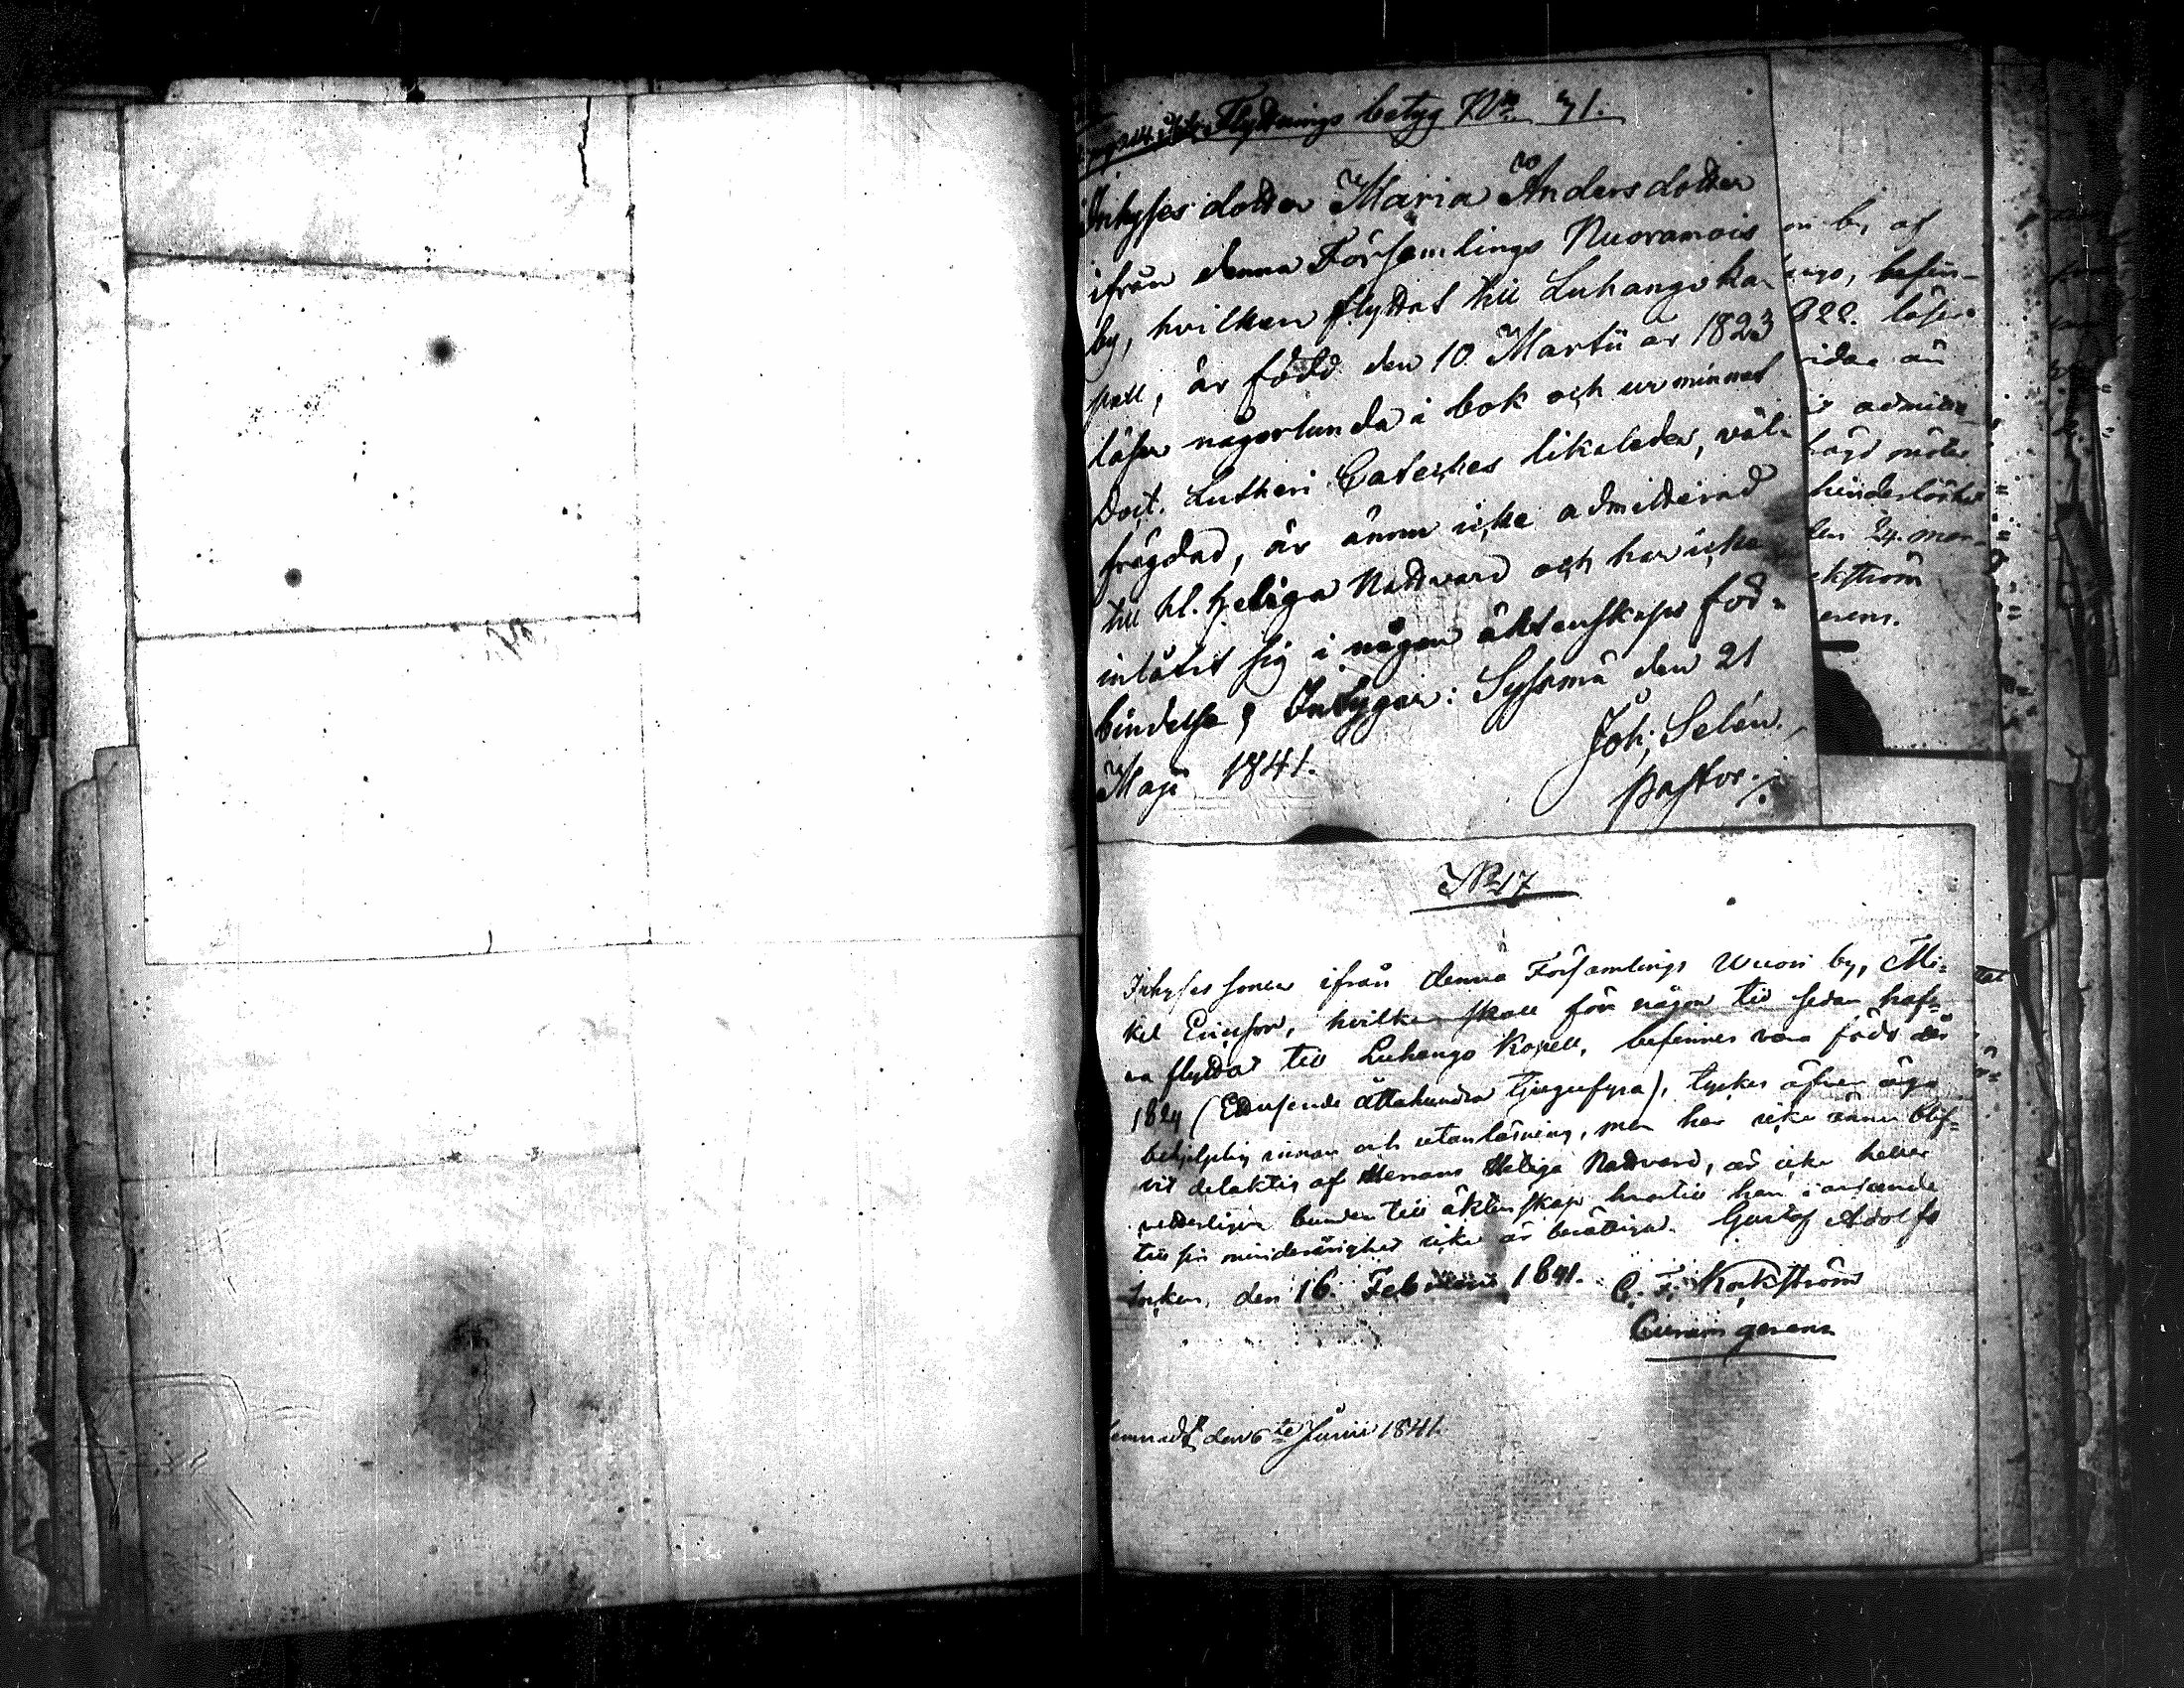 Flyttnings betyg No 71.
Inhyses dotter Maria Andersdotter
ifrån denna Församlings Nuoramois
by, hvilken flyttat till Luhango ka-
pell, är född den 10 Martii år 1823
läser någorlunda i bok och ur minnet
Doct. Lutheri Cateches likaledes, väl-
frägdad, är ännu icke admitterad
till H. Heliga Nattvard och har icke
inlåtit sig i någon äktenskaps för-
bindelse; Intygar: Sysmä den 21
Maji 1841.
Joh; Selén.
Pastor.
on b, af
befin-
822. läser
admitte-
hinderlöshet
den 24. mar-
erens.
No 17
Inhyses sonen ifrån denna Församlings Wuori by, Mi-
kel Ericsson, hvilken skall för någon tid sedan haf-
va flyttat till Luhango Kapell, befinnes vara född år
1824 (Ettusende åttahundra tjugufyra), tyckes äfven äga
behjelplig innan och utanläsning, men har icke ännu blif-
vit delaktig af Herrans Heliga Nattvard, är icke heller
vetterligen bunden till äktenskap hvartill han i anseende
till sin minderårighet icke är berättigad. Gustaf Adolfs
Socken, den 16. Februarii 1841.
C. F. Kockström
Curam gerens
den 6te Junii 1841.